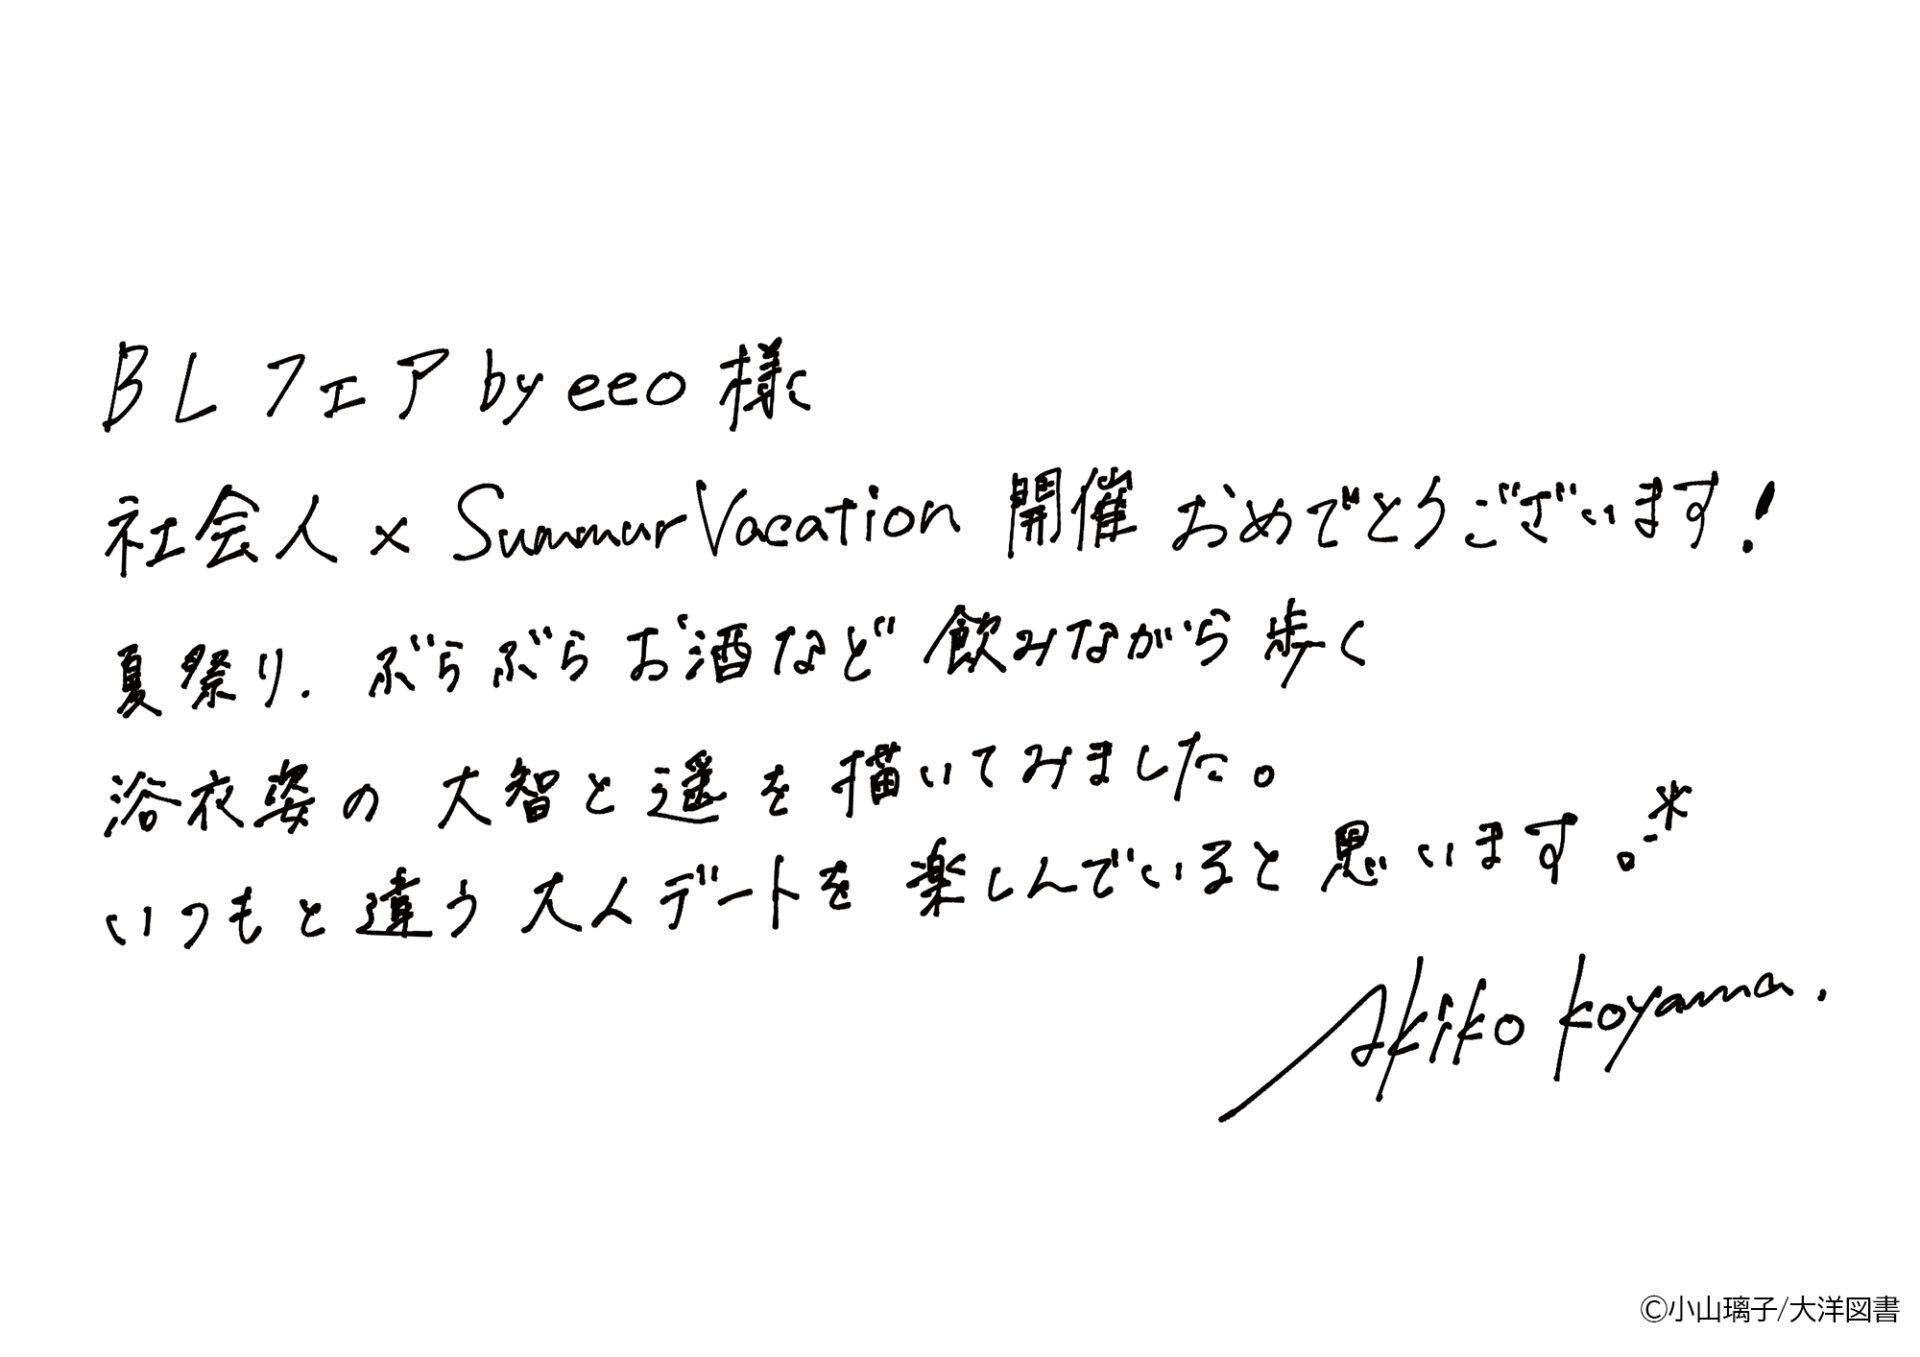 BLフェア by eeo 様
社会人×SummurVacation 開催おめでとうございます!
夏祭り. ぶらぶらお酒など飲みながら歩く
浴衣姿の大智と遥を描いてみました。
いつもと違う大人デートを楽しんでいると思います。*
Akiko Koyama.
©小山璃子/大洋図書